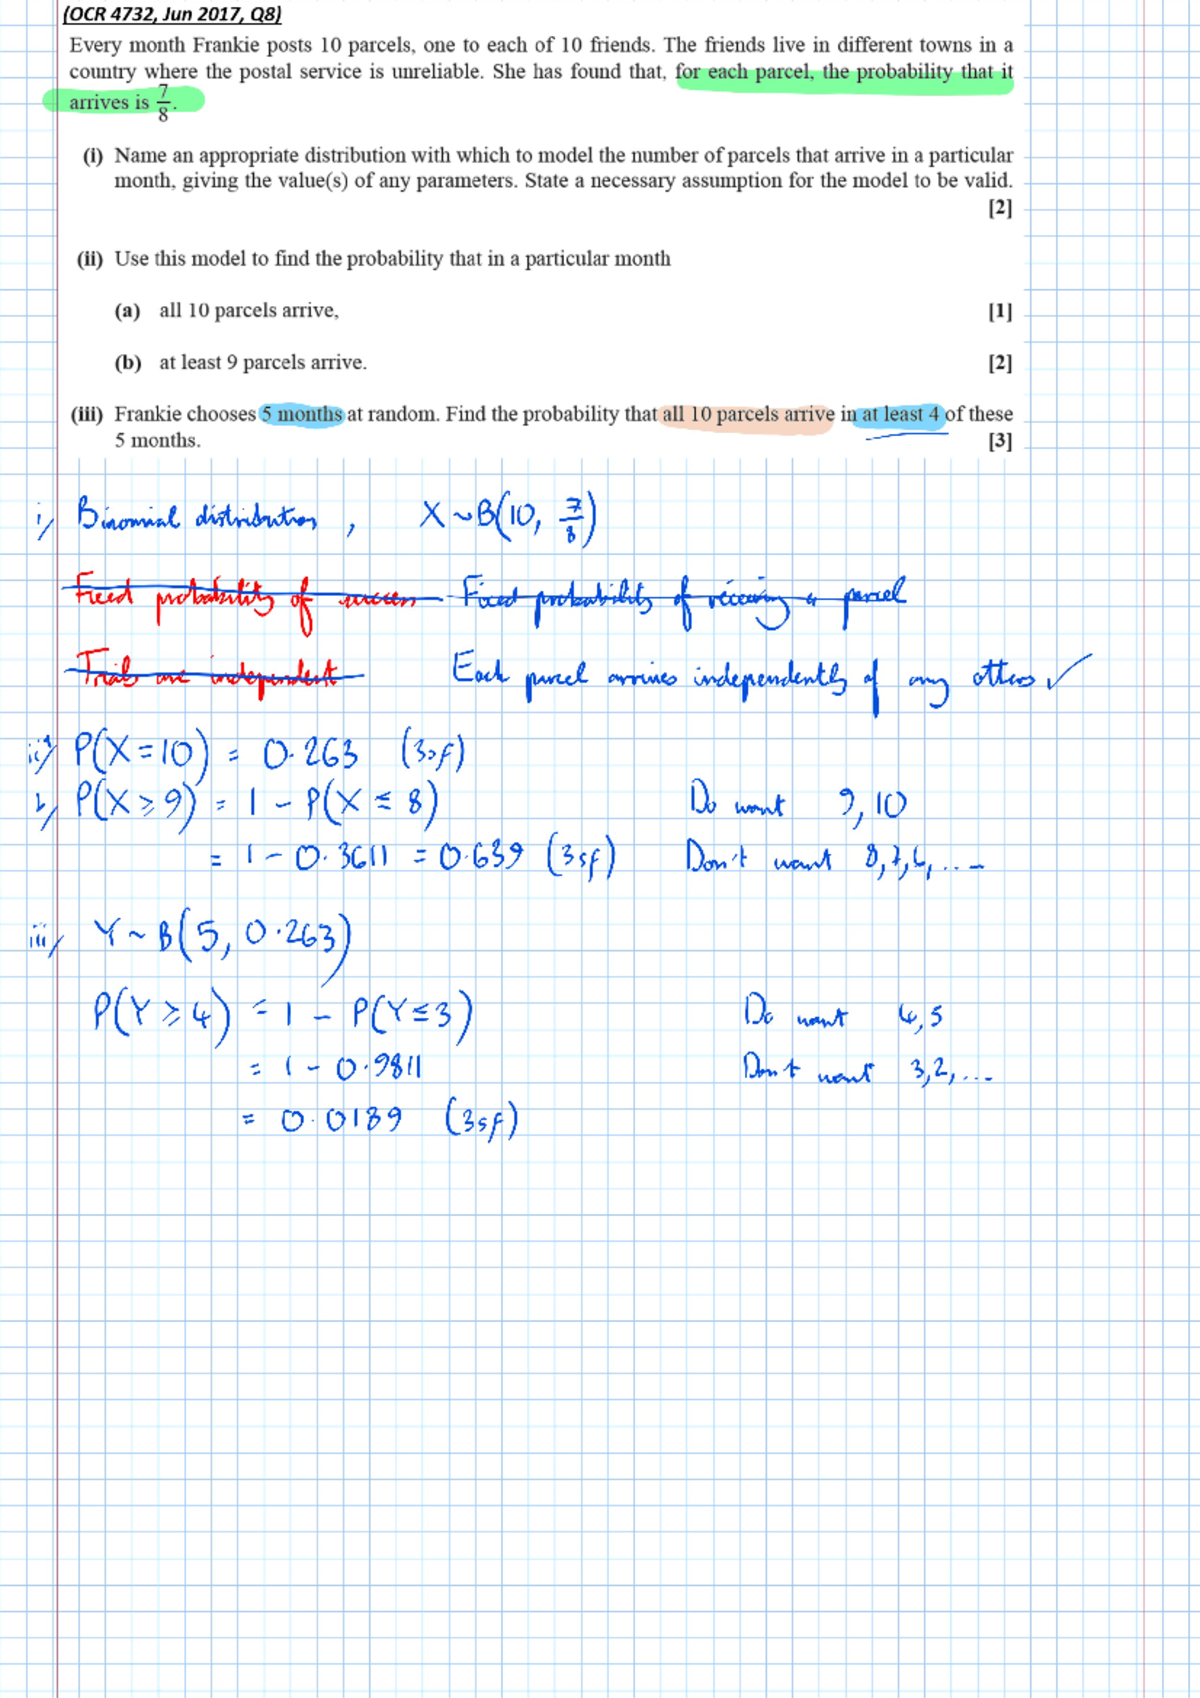 (OCR 4732, Jun 2017, Q8)
Every month Frankie posts 10 parcels, one to each of 10 friends. The friends live in different towns in a
country where the postal service is unreliable. She has found that, for each parcel, the probability that it
arrives is 7/8.
(i) Name an appropriate distribution with which to model the number of parcels that arrive in a particular
month, giving the value(s) of any parameters. State a necessary assumption for the model to be valid.
[2]
(ii) Use this model to find the probability that in a particular month
(a) all 10 parcels arrive, [1]
(b) at least 9 parcels arrive. [2]
(iii) Frankie chooses 5 months at random. Find the probability that all 10 parcels arrive in at least 4 of these
5 months. [3]
i) Binomial distribution, X~B(10, 7/8)
Fixed probability of success Fixed probability of receiving a parcel
Trials are independent Each parcel arrives independently of any others ✓
P(X=10) = 0.263 (3sf)
b) P(X≥9) = 1 - P(X≤8) Do want 9,10
= 1 - 0.3611 = 0.639 (3sf) Don't want 8,7,6,...
iii) Y~B(5, 0.263)
P(Y≥4) = 1 - P(Y≤3) Do want 4,5
= 1 - 0.9811 Don't want 3,2,...
= 0.0189 (3sf)